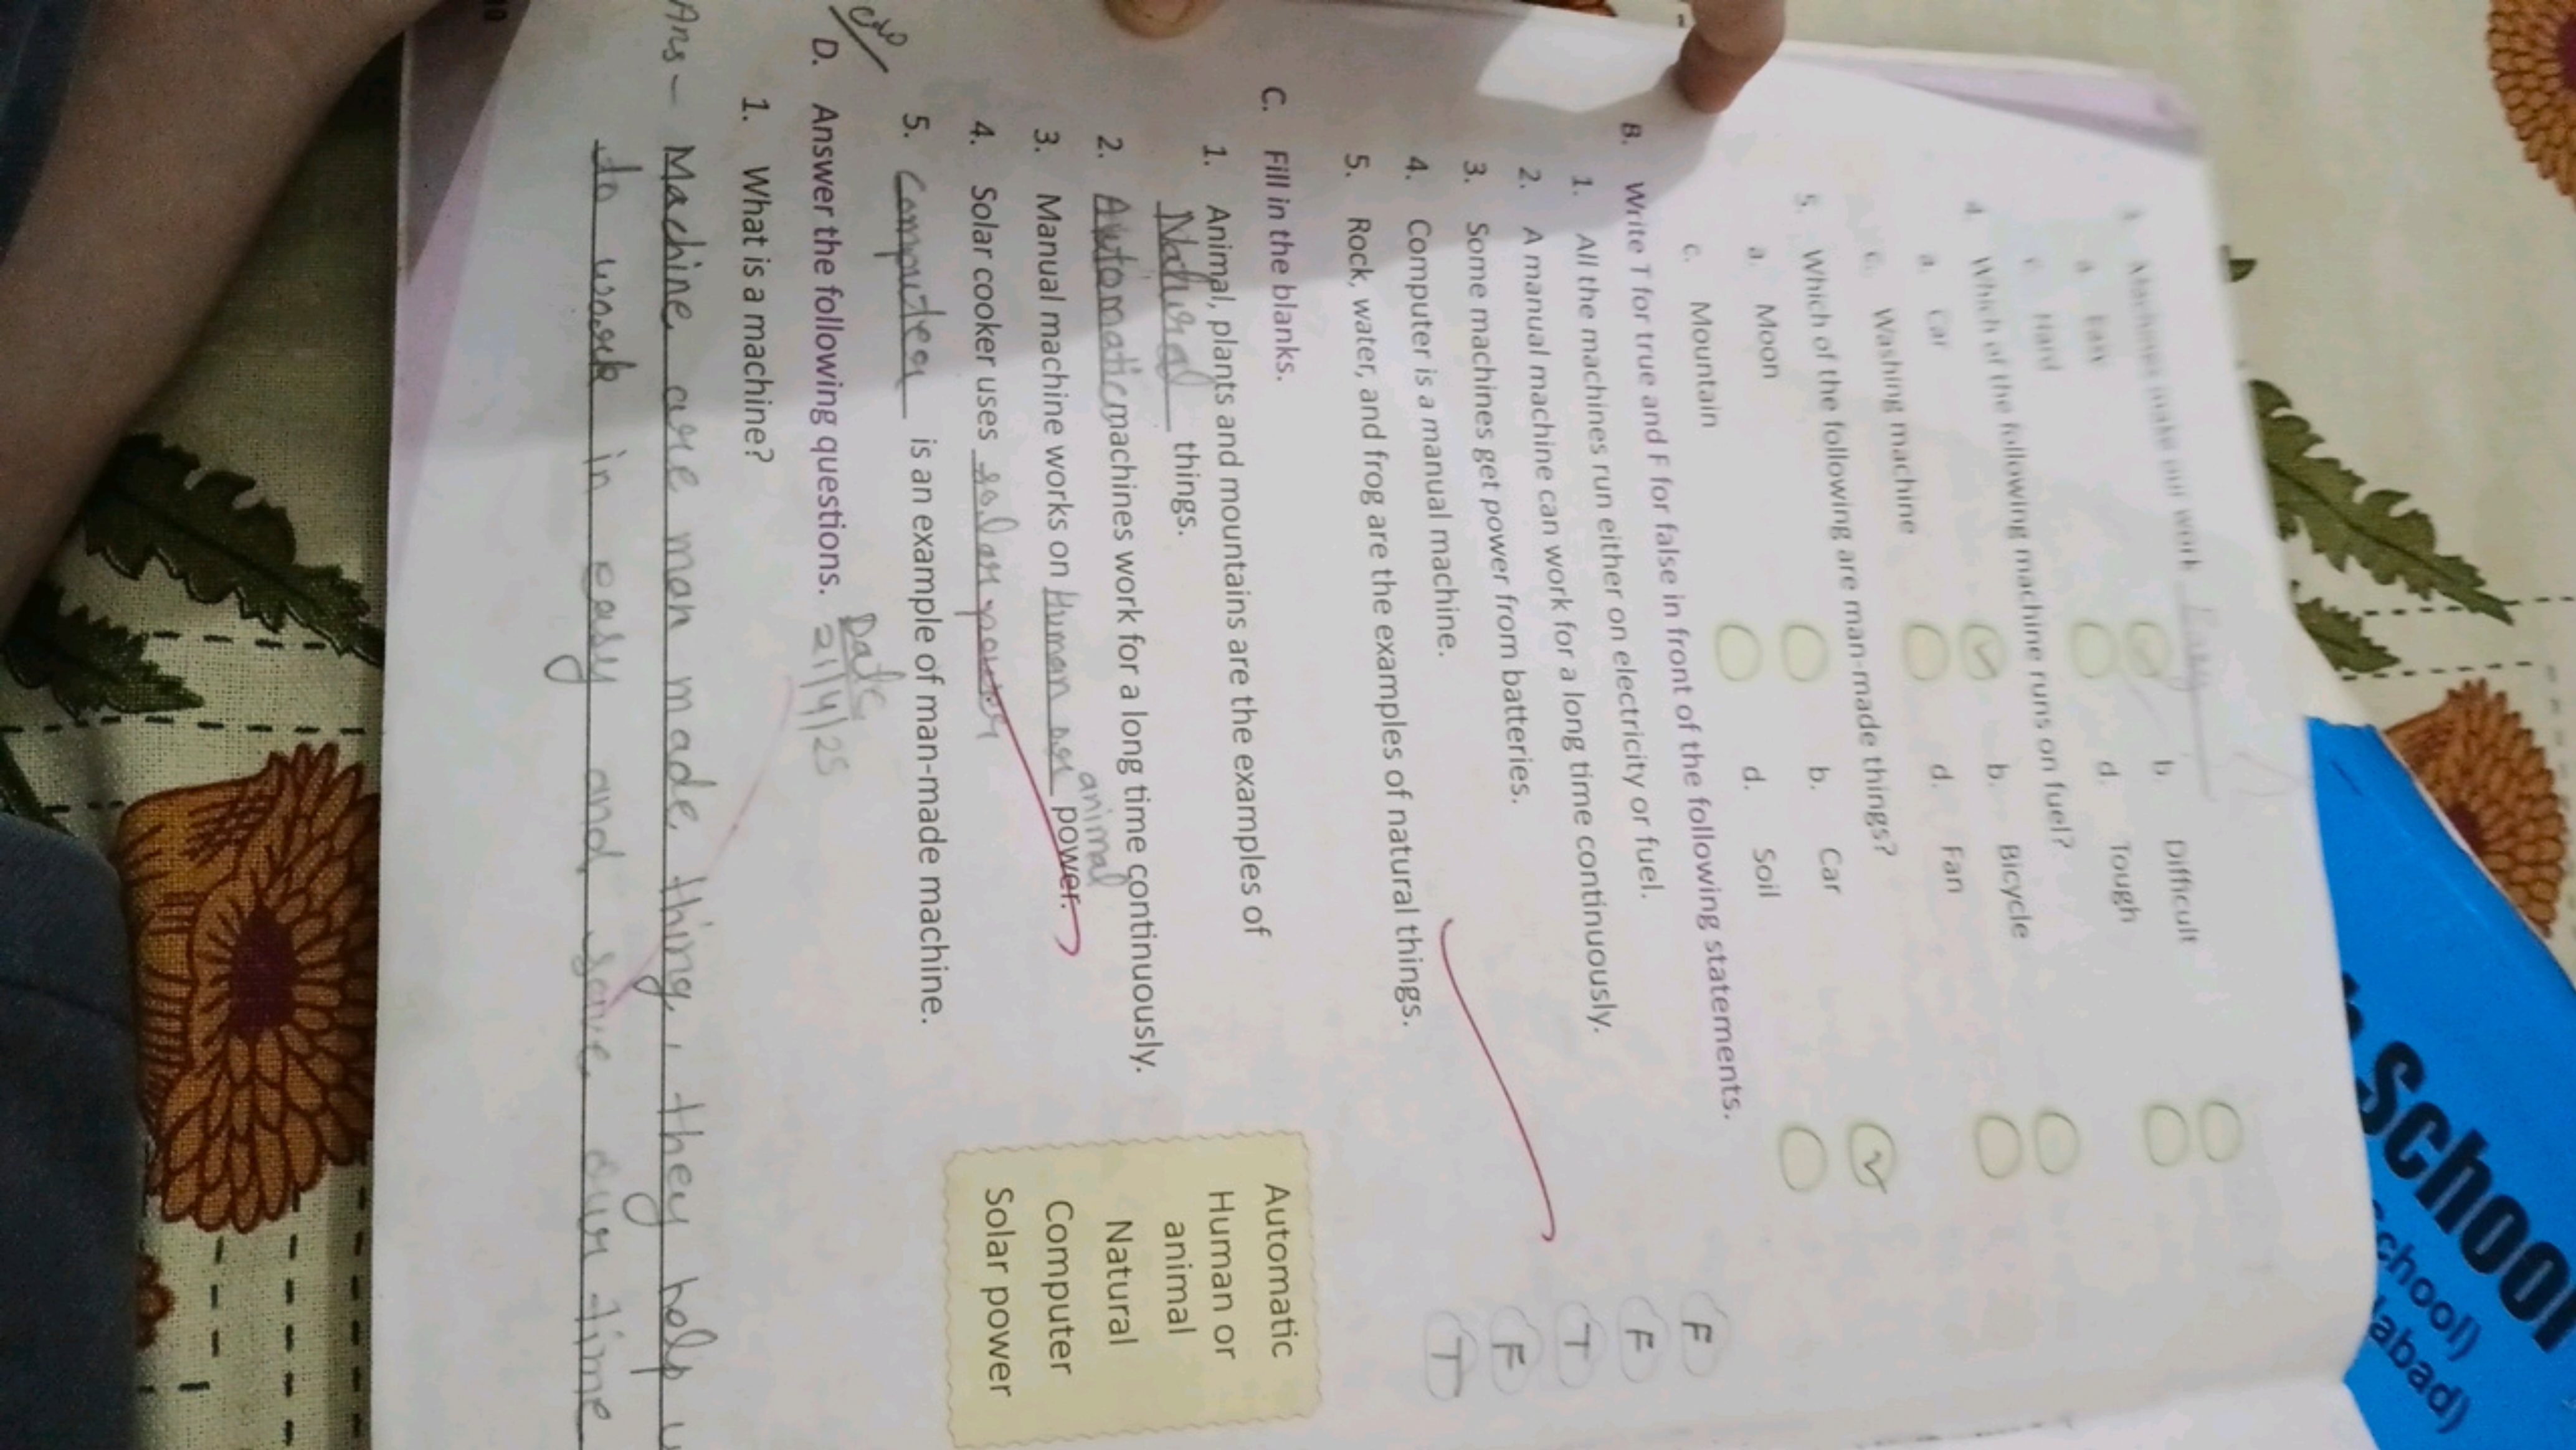 3. Machines make our work Easy
a. Easy b. Difficult
c. Hard d. Tough
4. Which of the following machine runs on fuel?
a. Car b. Bicycle
c. Washing machine d. Fan
5. Which of the following are man-made things?
a. Moon b. Car
c. Mountain d. Soil
B. Write T for true and F for false in front of the following statements.
1. All the machines run either on electricity or fuel. F
2. A manual machine can work for a long time continuously. F
3. Some machines get power from batteries. T
4. Computer is a manual machine. F
5. Rock, water, and frog are the examples of natural things. T
C. Fill in the blanks.
1. Animal, plants and mountains are the examples of
Natural things.
2. Automatic machines work for a long time continuously.
3. Manual machine works on Human or animal power.
4. Solar cooker uses solar power
5. Computer is an example of man-made machine.
Automatic
Human or
animal
Natural
Computer
Solar power
D. Answer the following questions. Date
21/4/25
1. What is a machine?
Ans- Machine are man made thing, they help
to work in easy and save our time
10
School
chool)
abad)